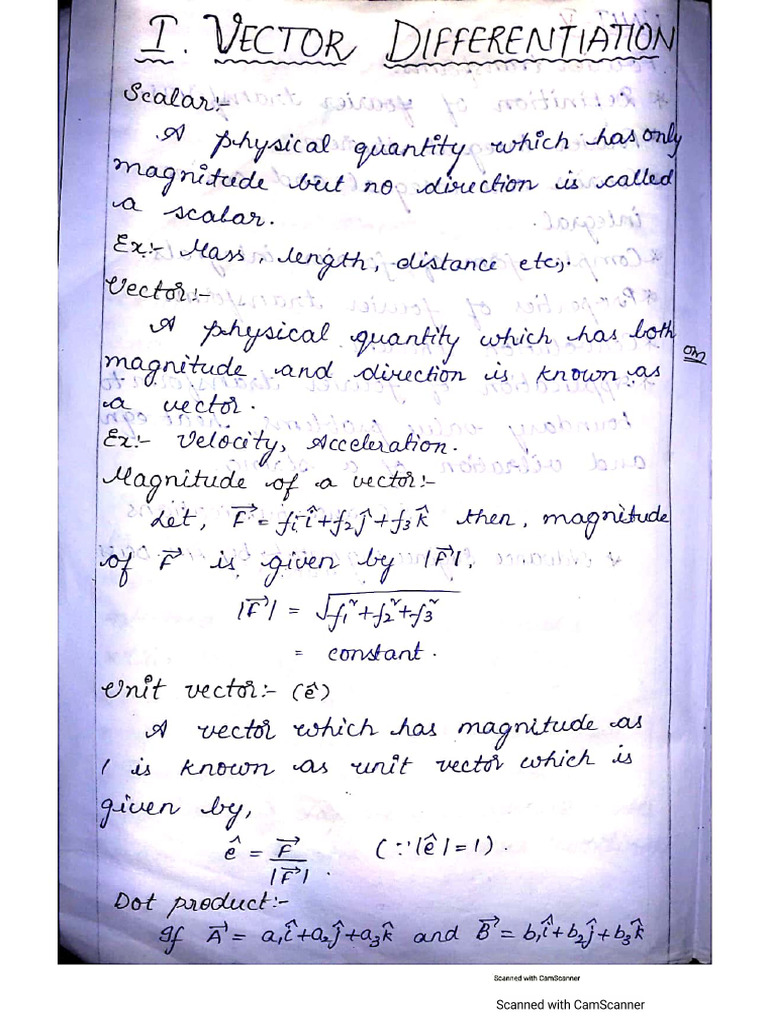 I. VECTOR DIFFERENTIATION
Scalar:-
A physical quantity which has only
magnitude but no direction is called
a scalar.
Ex:- Mass, length, distance etc,.
Vector:-
A physical quantity which has both
magnitude and direction is known as
a vector.
Ex:- Velocity, Acceleration.
Magnitude of a vector:-
Let, F⃗ = f₁î+f₂ĵ+f₃k̂ then, magnitude
of F⃗ is given by |F⃗|.
|F⃗| = √(f₁²+f₂²+f₃²)
= constant.
Unit vector:- (ê)
A vector which has magnitude as
1 is known as unit vector which is
given by,
ê = F⃗/|F⃗|. (∵|ê|=1).
Dot product:-
If A⃗ = a₁î+a₂ĵ+a₃k̂ and B⃗ = b₁î+b₂ĵ+b₃k̂
Scanned with CamScanner
Scanned with CamScanner